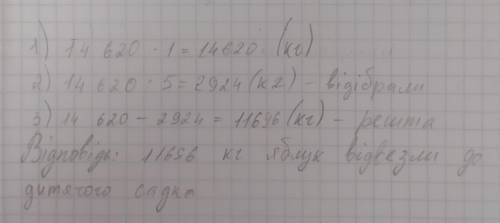 1) 14 620 · 1 = 14620 (кг)
2) 14 620 : 5 = 2924 (кг) - відібрали
3) 14 620 - 2924 = 11696 (кг) - решта
Відповідь: 11696 кг яблук відвезли до
дитячого садка